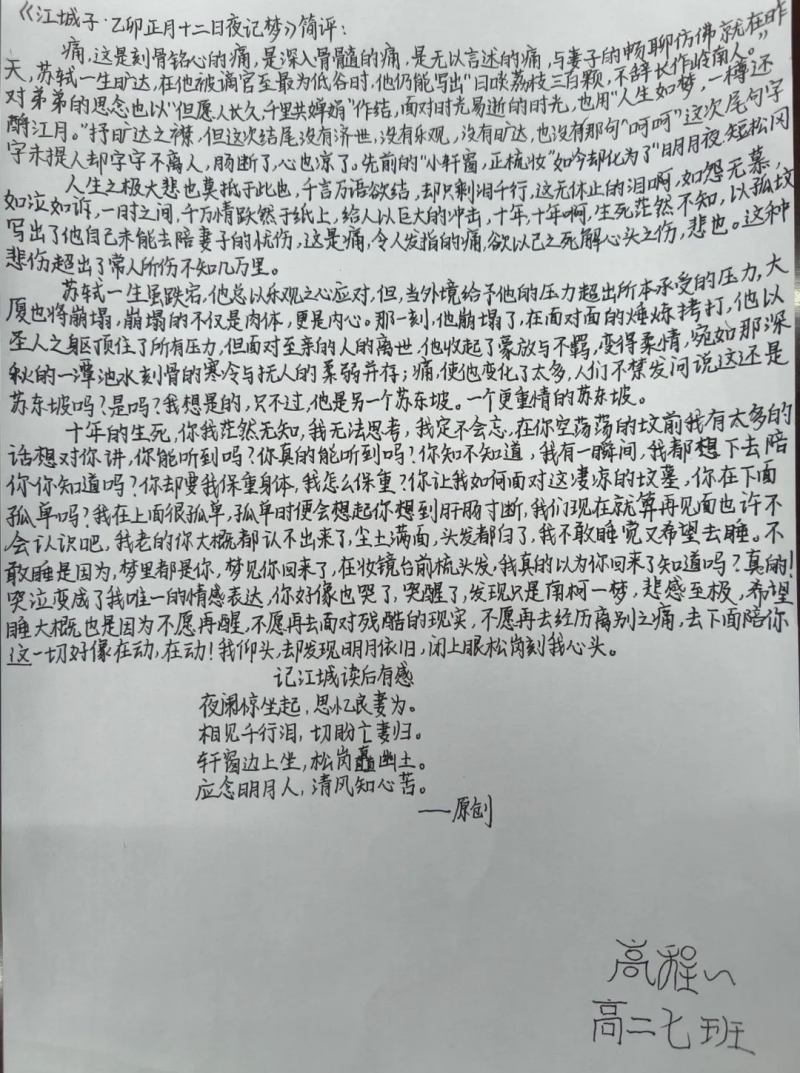 《江城子·乙卯正月十二日夜记梦》简评：
痛，这是刻骨铭心的痛，是深入骨髓的痛，是无以言述的痛，与妻子的畅聊仿佛就在昨
天，苏轼一生旷达，在他被谪官至最为低谷时，他仍能写出“日啖荔枝三百颗，不辞长作岭南人。”
对弟弟的思念也以“但愿人长久，千里共婵娟”作结，面对时光易逝的时光，也用“人生如梦，一樽还
酹江月。”抒旷达之襟，但这次结尾没有济世，没有乐观，没有旷达，也没有那句“呵呵”这次尾句字
字未提人却字字不离人，肠断了，心也凉了。先前的“小轩窗，正梳妆”如今却化为了“明月夜，短松冈
人生之极大悲也莫抵于此也，千言万语欲结，却只剩泪千行，这无休止的泪啊，如怨无慕，
如泣如诉，一时之间，千万情跃然于纸上，给人以巨大的冲击，十年，十年啊，生死茫然不知，以孤坟
写出了他自己未能去陪妻子的忧伤，这是痛，令人发指的痛，欲以己之死解心头之伤，悲也。这种
悲伤超出了常人所伤不知几万里。
苏轼一生虽跌宕，他总以乐观之心应对，但，当外境给予他的压力超出所本承受的压力，大
厦也将崩塌，崩塌的不仅是肉体，更是内心。那一刻，他崩塌了，在面对面的捶炼拷打，他以
圣人之躯顶住了所有压力，但面对至亲的人的离世，他收起了豪放与不羁，变得柔情，宛如那深
秋的一潭池水刻骨的寒冷与抚人的柔弱并存；痛，使他变化了太多，人们不禁发问说这还是
苏东坡吗？是吗？我想是的，只不过，他是另一个苏东坡。一个更重情的苏东坡。
十年的生死，你我茫然无知，我无法思考，我定不会忘，在你空荡荡的坟前我有太多的
话想对你讲，你能听到吗？你真的能听到吗？你知不知道，我有一瞬间，我都想下去陪
你你知道吗？你却要我保重身体，我怎么保重？你让我如何面对这凄凉的坟墓，你在下面
孤单吗？我在上面很孤单，孤单时便会想起你想到肝肠寸断，我们现在就算再见面也许不
会认识吧，我老的你大概都认不出来了，尘土满面，头发都白了，我不敢睡觉又希望去睡。不
敢睡是因为，梦里都是你，梦见你回来了，在妆镜台前梳头发，我真的以为你回来了知道吗？真的！
哭泣变成了我唯一的情感表达，你好像也哭了，哭醒了，发现只是南柯一梦，悲感至极，希望
睡大概也是因为不愿再醒，不愿再去面对残酷的现实，不愿再去经历离别之痛，去下面陪你
这一切好像在动，在动！我仰头，却发现明月依旧，闭上眼松岗刻我心头。
记江城读后有感
夜阑惊坐起，思忆良妻为。
相见千行泪，切盼亡妻归。
轩窗边上坐，松岗矗幽土。
应念明月人，清风知心苦。
——原创
高程
高二七班